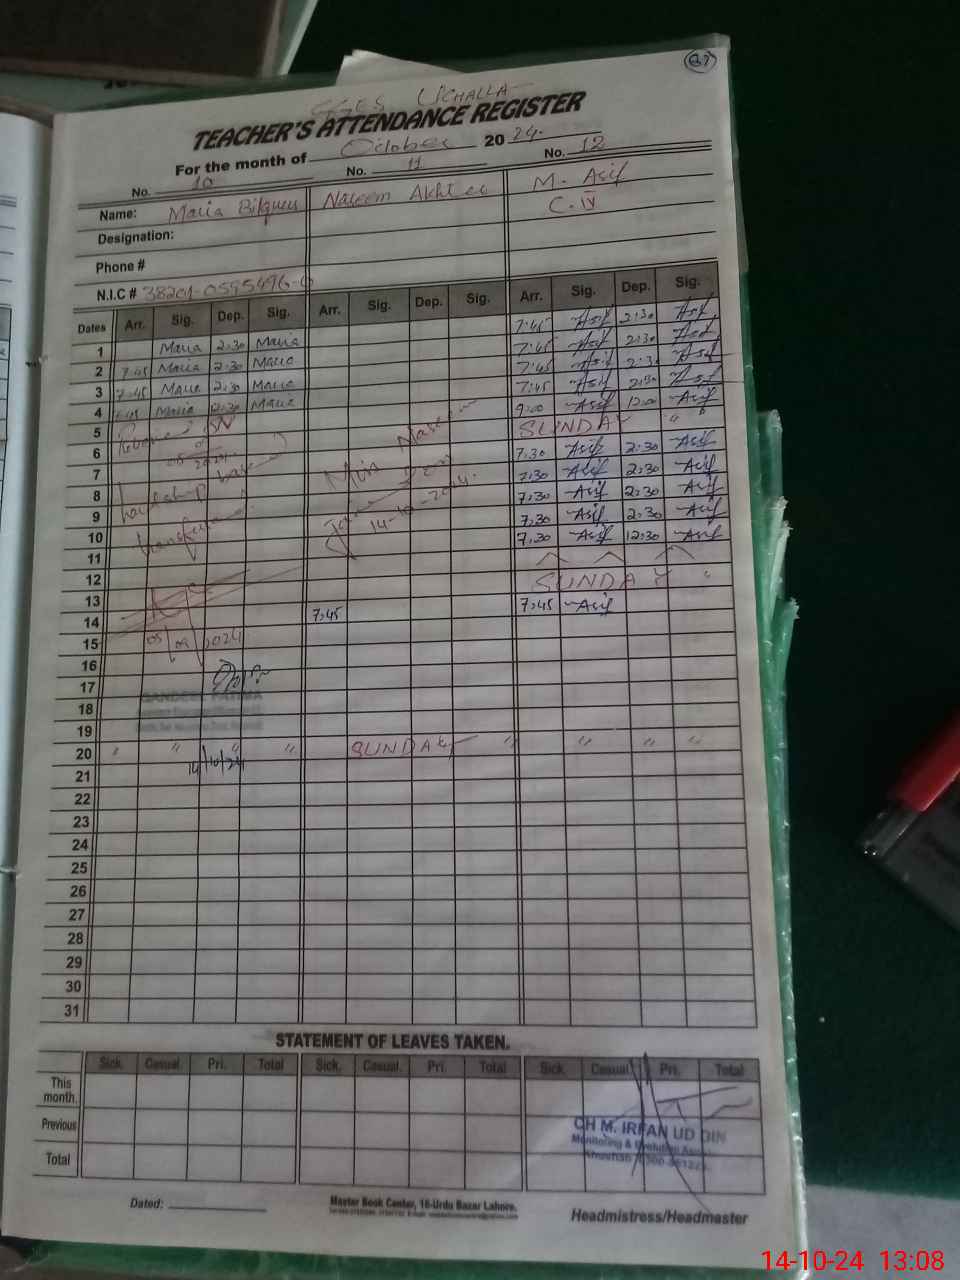 87
GGES UCHALLA
TEACHER'S ATTENDANCE REGISTER
For the month of October 2024.
No. 10 No. 11 No. 12
Name: Maria Bilquees Naseem Akhtar M. Asif
Designation: C. IV
Phone #
N.I.C # 38201-0595496-0
Dates Arr. Sig. Dep. Sig. Arr. Sig. Dep. Sig. Arr. Sig. Dep. Sig.
7:45 Asif 2:30 Asif
1 Maria 2:30 Maria 7:45 Asif 2:30 Asif
2 7:45 Maria 2:30 Maria 7:45 Asif 2:30 Asif
3 7:45 Maria 2:30 Maria 7:45 Asif 2:30 Asif
4 7:45 Maria 12:30 Maria 9:00 Asif 12:00 Asif
5 SUNDAY "
6 7:30 Asif 2:30 Asif
7 7:30 Asif 2:30 Asif
8 7:30 Asif 2:30 Asif
9 7:30 Asif 2:30 Asif
10 7:30 Asif 12:30 Asif
11
12 SUNDAY "
13 7:45 Asif
14 7:45
15
16
17
18
19
20 " " " " SUNDAY " " " "
21
22
23
24
25
26
27
28
29
30
31
hardship base
transfer
05/09/2024
14/10/24
Miss Naseem
14-10-2024.
STATEMENT OF LEAVES TAKEN.
Sick. Casual. Pri. Total Sick. Casual. Pri. Total Sick. Casual. Pri. Total
This month.
Previous
Total
CH M. IRFAN UD DIN
Dated:
Master Book Center, 16-Urdu Bazar Lahore.
Headmistress/Headmaster
14-10-24 13:08